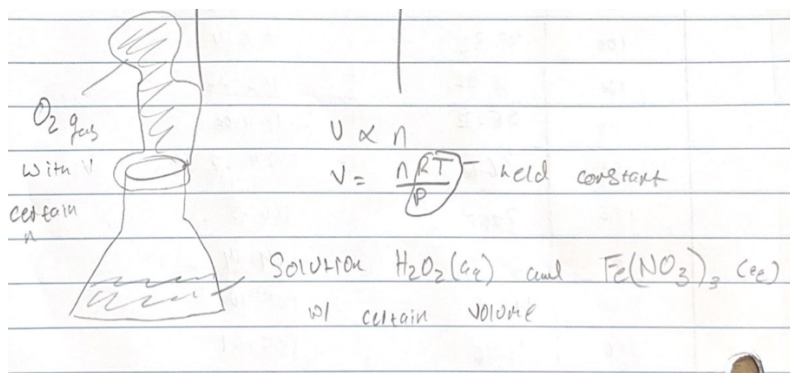 O₂ gas
with V
certain
n
V ∝ n
V = nRT/P - held constant
Solution H₂O₂(aq) and Fe(NO₃)₃ (aq)
w/ certain volume